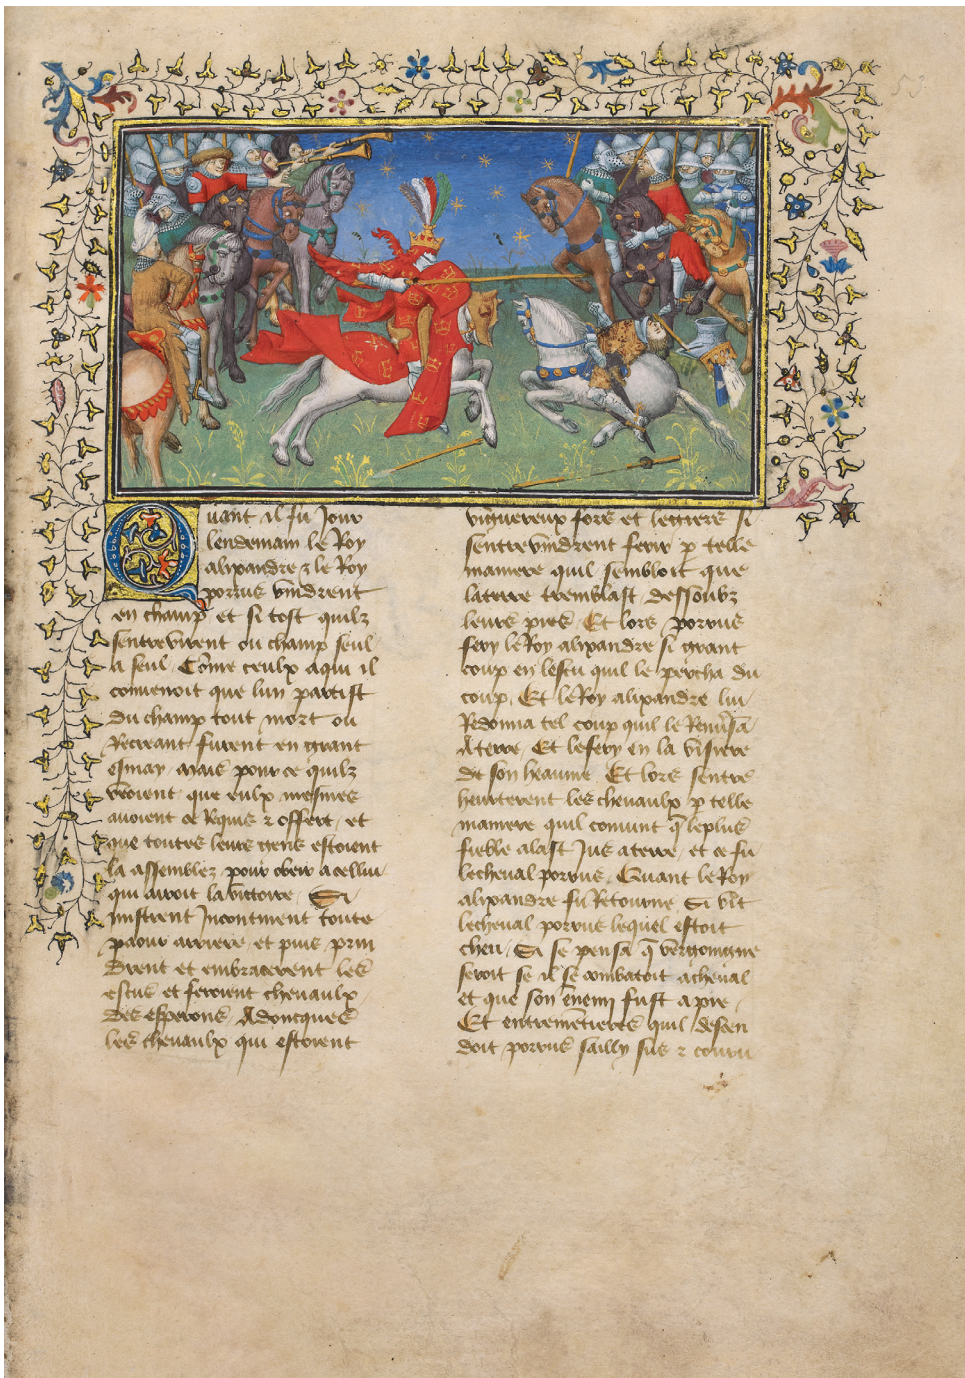 53
Quant il fu Jour
lendemain le Roy
alixandre & le Roy
porrus vindrent
en champ et si tost quilz
sentrevirent ou champ seul
a seul Cōme ceulx a qui il
convenoit que lun partist
du champ tout mort ou
Recreant furent en grant
esmay, mais pour ce quilz
veoient que eulx mesmes
avoient ce Requis & offert, et
que toutes leurs gens estoient
la assemblez, pour obeir a cellui
qui auroit la victoire, Si
mistrent Incontinent toute
paour arriere, et puis prin
drent et embracerent les
escus et ferirent chevaulx
des esperons, Adoncques
les chevaulx qui estoient
viguereux fors et legiers si
sentrevindrent ferir p telle
maniere quil sembloit que
la terre tremblast dessoubz
leurs pies, Et lors porrus
fery le Roy alixandre si grant
coup en lescu quil le percha du
coup, Et le Roy alixandre lui
Redonna tel coup quil le Renv̄sa
A terre, Et le fery en la visiere
de son heaume, Et lors sentre
heurterent les chevaulx p telle
maniere quil convint q̄ le plus
fieble alast Jus a terre, et ce fu
le cheval porrus, Quant le Roy
alixandre fu Retourne Si vit
le cheval porrus lequel estoit
cheu, Si se pensa q̄ vergongne
seroit se il se combatoit a cheval
et que son enemi fust a pie,
Et entremētieres quil descen
doit porrus sailly sus & couru